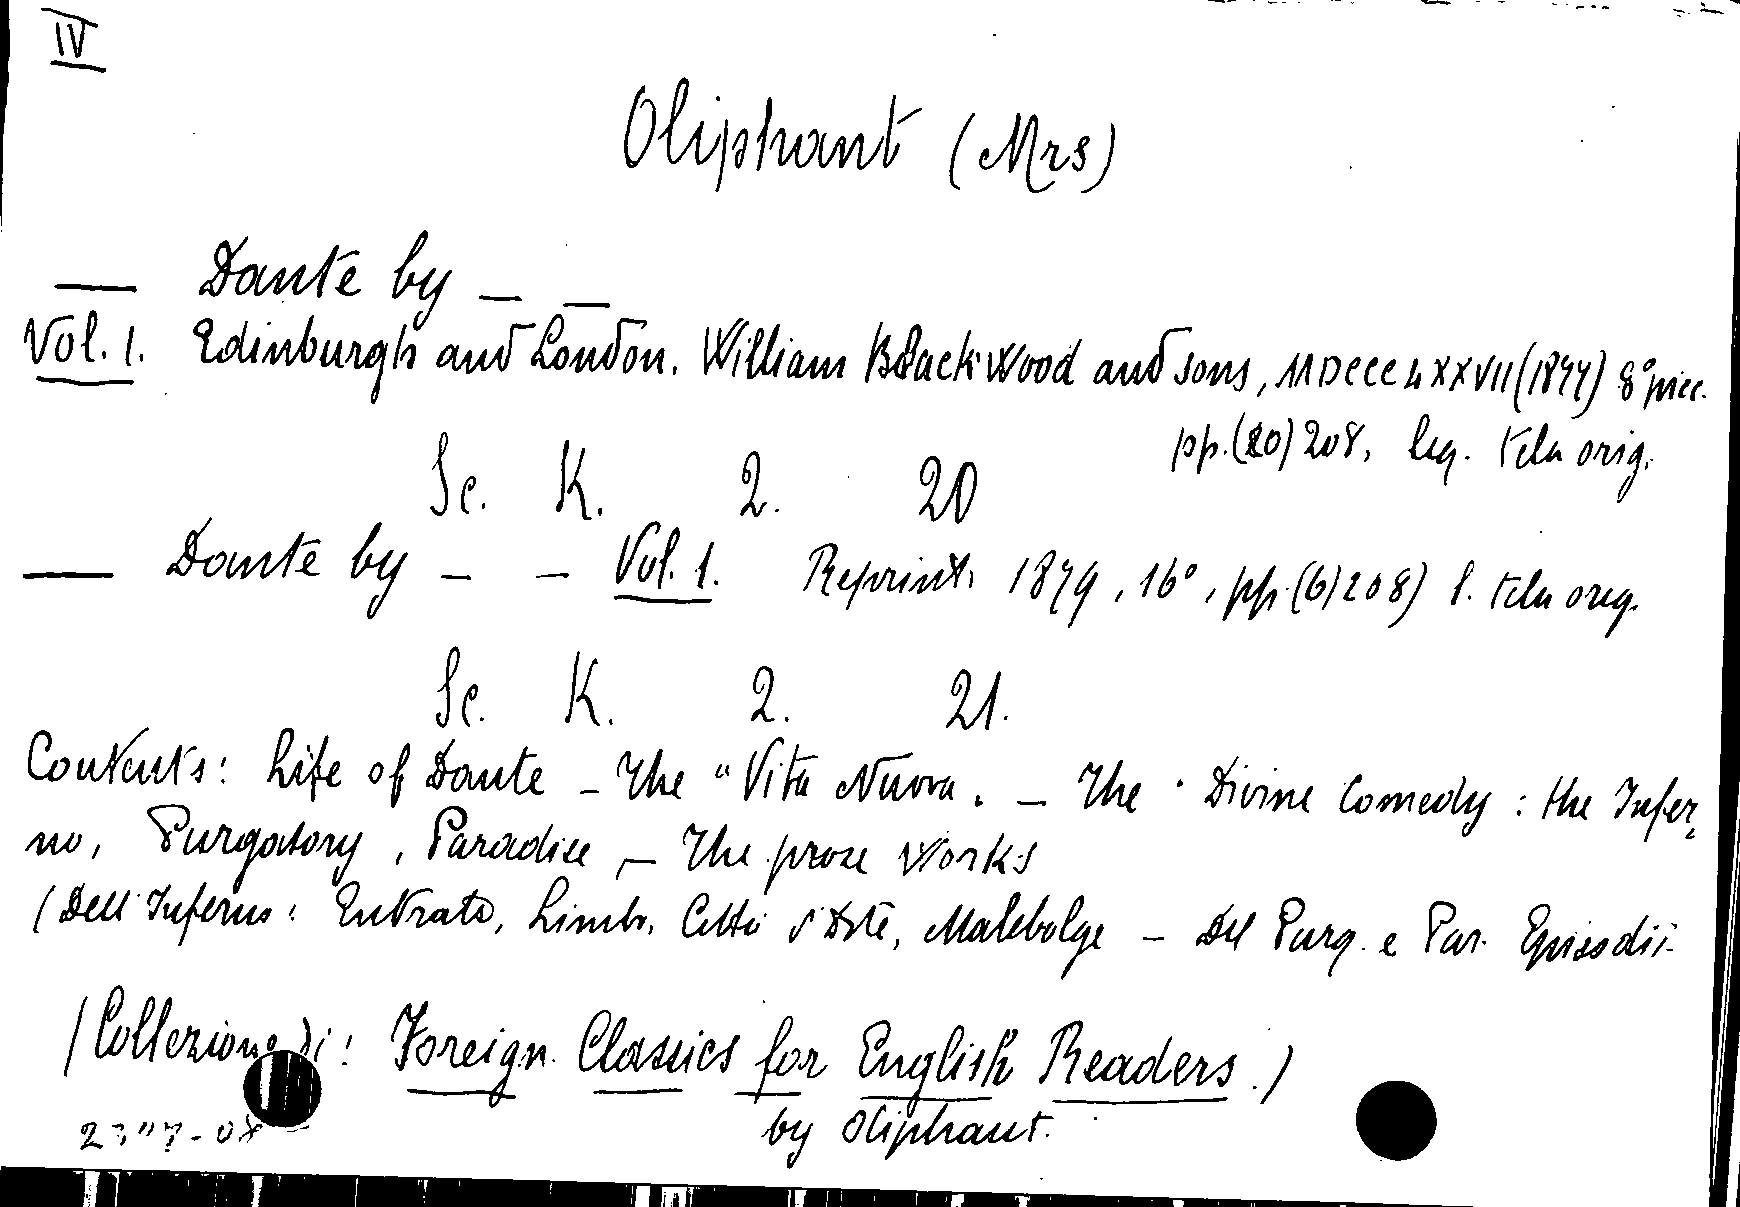 IV
Oliphant (Mrs)
— Dante by — —
Vol. 1. Edinburgh and London. William Blackwood and Sons, MDCCCLXXVII (1877) 8° picc.
pp. (20) 208, leg. tela orig.
Sc. K. 2. 20
— Dante by — — Vol. 1. Reprint. 1879, 16°, pp. (6) 208) l. tela orig.
Sc. K. 2. 21.
Contents: Life of Dante — The "Vita Nuova. — The Divine Comedy: the Infer
no, Purgatory, Paradise, — The prose Works
(Dell'Inferno: Entrata, Limbo, Città d Dite, Malebolge — Del Purg. e Par. Episodii
(Collezione di: Foreign Classics for English Readers.)
by Oliphant.